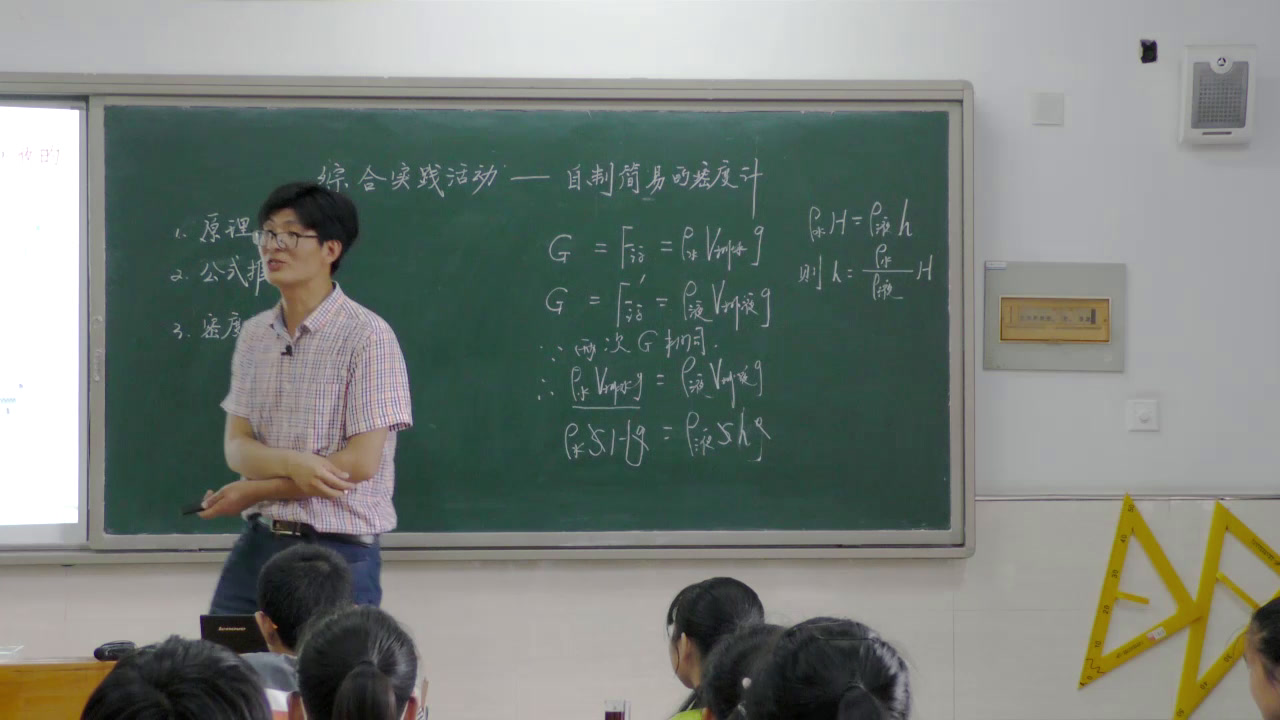 综合实践活动 — 自制简易的密度计
1. 原理
2. 公式推
3. 密度
G = F浮 = ρ水V排水g
G = F浮' = ρ液V排液g
∵ 两次G相同.
∴ ρ水V排水g = ρ液V排液g
ρ水SHg = ρ液Shg
ρ水H = ρ液h
则 h = ρ水/ρ液 H
的
lenovo